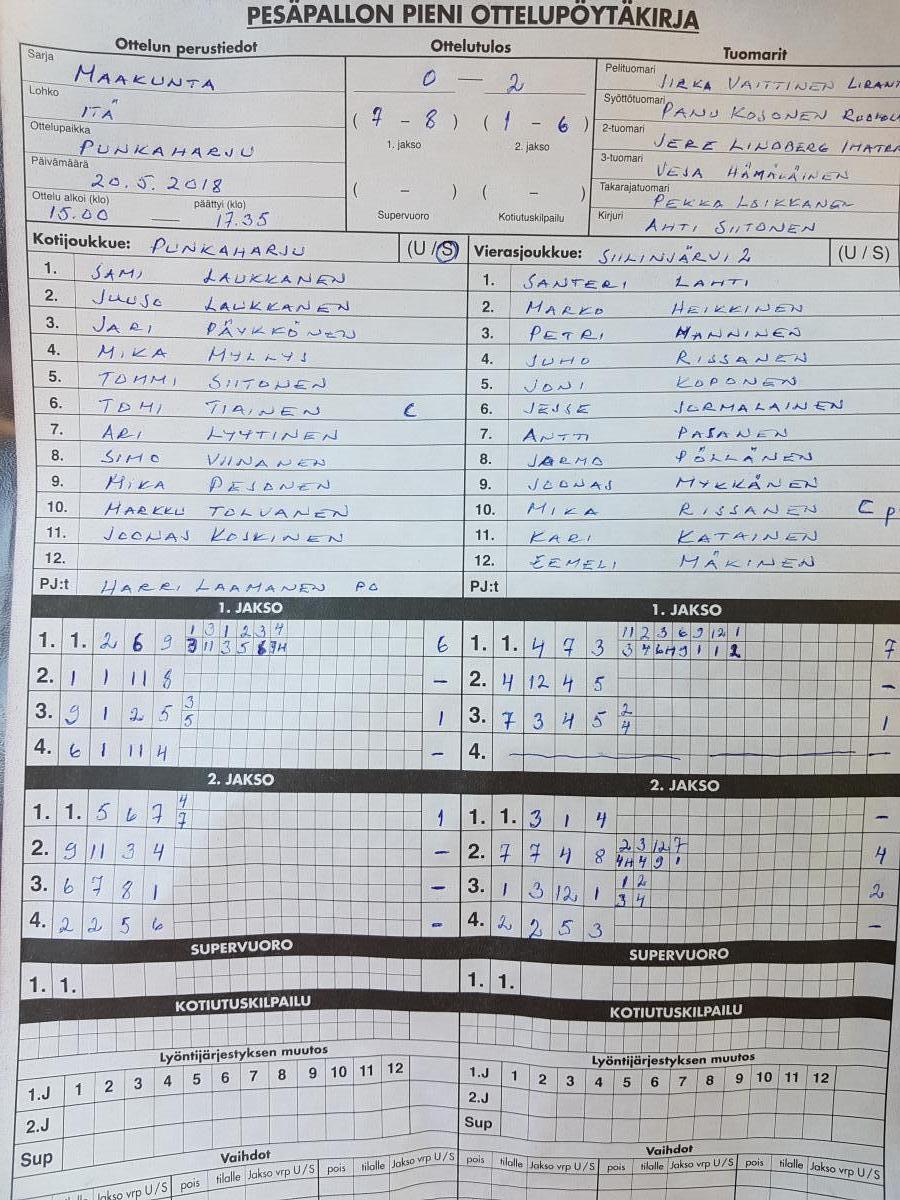 PESÄPALLON PIENI OTTELUPÖYTÄKIRJA
Ottelun perustiedot Ottelutulos Tuomarit
Sarja MAAKUNTA
Lohko ITÄ
Ottelupaikka PUNKAHARJU
Päivämäärä 20.5.2018
Ottelu alkoi (klo) päättyi (klo)
15.00 — 17.35
0 — 2
( 7 - 8 ) ( 1 - 6 )
1. jakso 2. jakso
( - ) ( - )
Supervuoro Kotiutuskilpailu
Pelituomari JIRKA VAITTINEN LIRANT
Syöttötuomari PANU KOSONEN
2-tuomari JERE LINDBERG IMATRA
3-tuomari VESA HÄMÄLÄINEN
Takarajatuomari PEKKA LAIKKANEN
Kirjuri AHTI SIITONEN
Kotijoukkue: PUNKAHARJU (U / S) Vierasjoukkue: SIILINJÄRVI 2 (U / S)
1. SAMI LAUKKANEN 1. SANTERI LAHTI
2. JUUSO LAUKKANEN 2. MARKO HEIKKINEN
3. JARI PÄYKKÖNEN 3. PETRI MANNINEN
4. MIKA MYLLYS 4. JUHO RISSANEN
5. TOMMI SIITONEN 5. JONI KOPONEN
6. TOMI TIAINEN C 6. JESSE JORMALAINEN
7. ARI LYYTINEN 7. ANTTI PASANEN
8. SIMO VIINANEN 8. JARMO PÖLLÄNEN
9. MIKA PESONEN 9. JOONAS MYKKÄNEN
10. MARKKU TOLVANEN 10. MIKA RISSANEN C p
11. JOONAS KOSKINEN 11. KARI KATAINEN
12. 12. EEMELI MÄKINEN
PJ:t HARRI LAAMANEN PJ:t
1. JAKSO 1. JAKSO
1 3 1 2 3 4 11 2 3 6 9 12 1
1. 1. 2 6 9 3 11 3 5 6 7H 6 1. 1. 4 7 3 3 4 6H 9 1 1 2 7
2. 1 1 11 8 – 2. 4 12 4 5 –
3 2
3. 9 1 2 5 5 1 3. 7 3 4 5 4 1
4. 6 1 11 4 – 4. –
2. JAKSO 2. JAKSO
4
1. 1. 5 6 7 7 1 1. 1. 3 1 4 –
2 3 12 7
2. 9 11 3 4 – 2. 7 7 4 8 4H 4 9 1 4
1 2
3. 6 7 8 1 – 3. 1 3 12 1 3 4 2
4. 2 2 5 6 – 4. 2 2 5 3 –
SUPERVUORO SUPERVUORO
1. 1. 1. 1.
KOTIUTUSKILPAILU KOTIUTUSKILPAILU
Lyöntijärjestyksen muutos Lyöntijärjestyksen muutos
1.J 1 2 3 4 5 6 7 8 9 10 11 12 1.J 1 2 3 4 5 6 7 8 9 10 11 12
2.J 2.J
Sup Sup
Vaihdot Vaihdot
tilalle Jakso vrp U/S pois tilalle Jakso vrp U/S pois tilalle Jakso vrp U/S pois tilalle Jakso vrp U/S pois tilalle Jakso vrp U/S